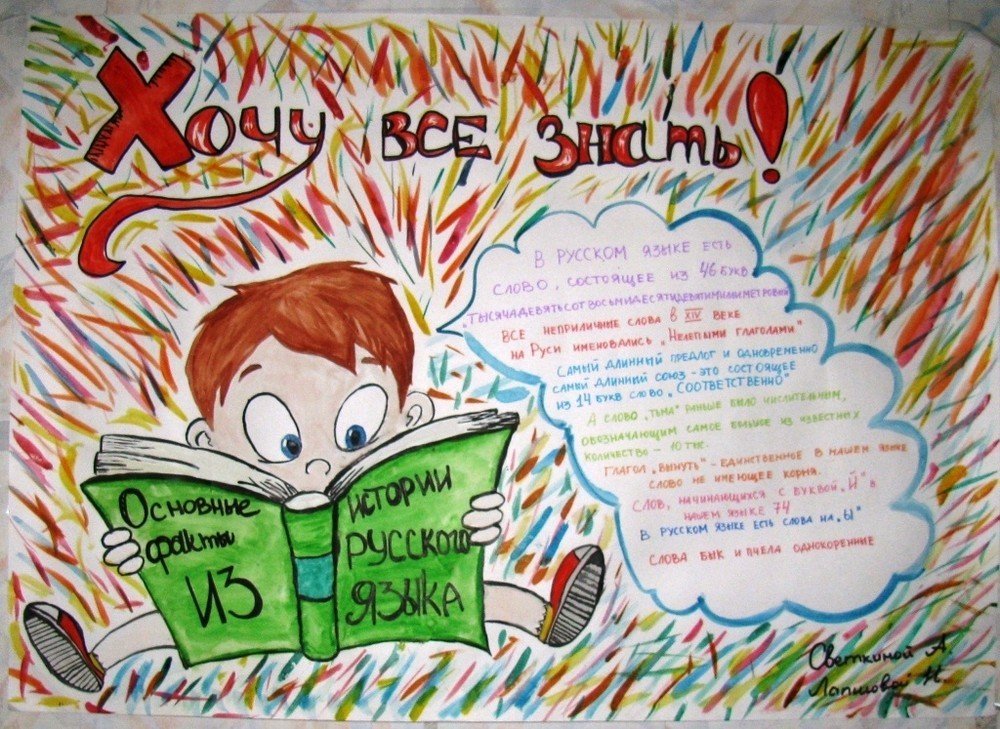 Хочу все знать!
В РУССКОМ ЯЗЫКЕ ЕСТЬ
СЛОВО, СОСТОЯЩЕЕ ИЗ 46 БУКВ
"ТЫСЯЧАДЕВЯТЬСОТВОСЬМИДЕСЯТИДЕВЯТИМИЛЛИМЕТРОВЫЙ
ВСЕ НЕПРИЛИЧНЫЕ СЛОВА В XIV ВЕКЕ
НА РУСИ ИМЕНОВАЛИСЬ „НЕЛЕПЫМИ ГЛАГОЛАМИ"
САМЫЙ ДЛИННЫЙ ПРЕДЛОГ И ОДНОВРЕМЕННО
САМЫЙ ДЛИННЫЙ СОЮЗ - ЭТО СОСТОЯЩЕЕ
ИЗ 14 БУКВ СЛОВО „СООТВЕТСТВЕННО"
А СЛОВО „ТЬМА" РАНЬШЕ БЫЛО ЧИСЛИТЕЛЬНЫМ,
ОБОЗНАЧАЮЩИМ САМОЕ БОЛЬШОЕ ИЗ ИЗВЕСТНЫХ
КОЛИЧЕСТВО - 10 ТЫС.
ГЛАГОЛ „ВЫНУТЬ" - ЕДИНСТВЕННОЕ В НАШЕМ ЯЗЫКЕ
СЛОВО НЕ ИМЕЮЩЕЕ КОРНЯ.
СЛОВ, НАЧИНАЮЩИХСЯ С БУКВОЙ „Й" В
НАШЕМ ЯЗЫКЕ 74
В РУССКОМ ЯЗЫКЕ ЕСТЬ СЛОВА НА „Ы"
СЛОВА БЫК И ПЧЕЛА ОДНОКОРЕННЫЕ
Основные
факты
ИЗ
ИСТОРИИ
РУССКОГО
ЯЗЫКА
Светкиной А.
Лапшовой Н.